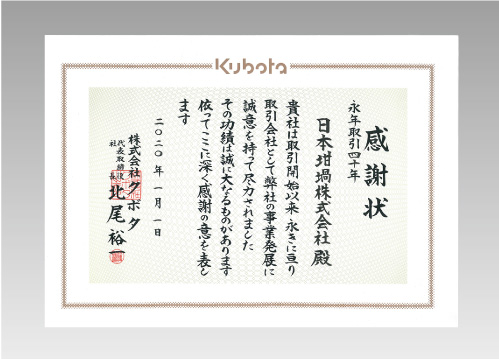 Kubota
感謝状
永年取引四十年
日本坩堝株式会社 殿
貴社は取引開始以来永きに亘り
取引会社として弊社の事業発展に
誠意を持って尽力されました
その功績は誠に大なるものがあります
依ってここに深く感謝の意を表し
ます
二〇二〇年一月一日
株式会社クボタ
代表取締役
社長 北尾裕一